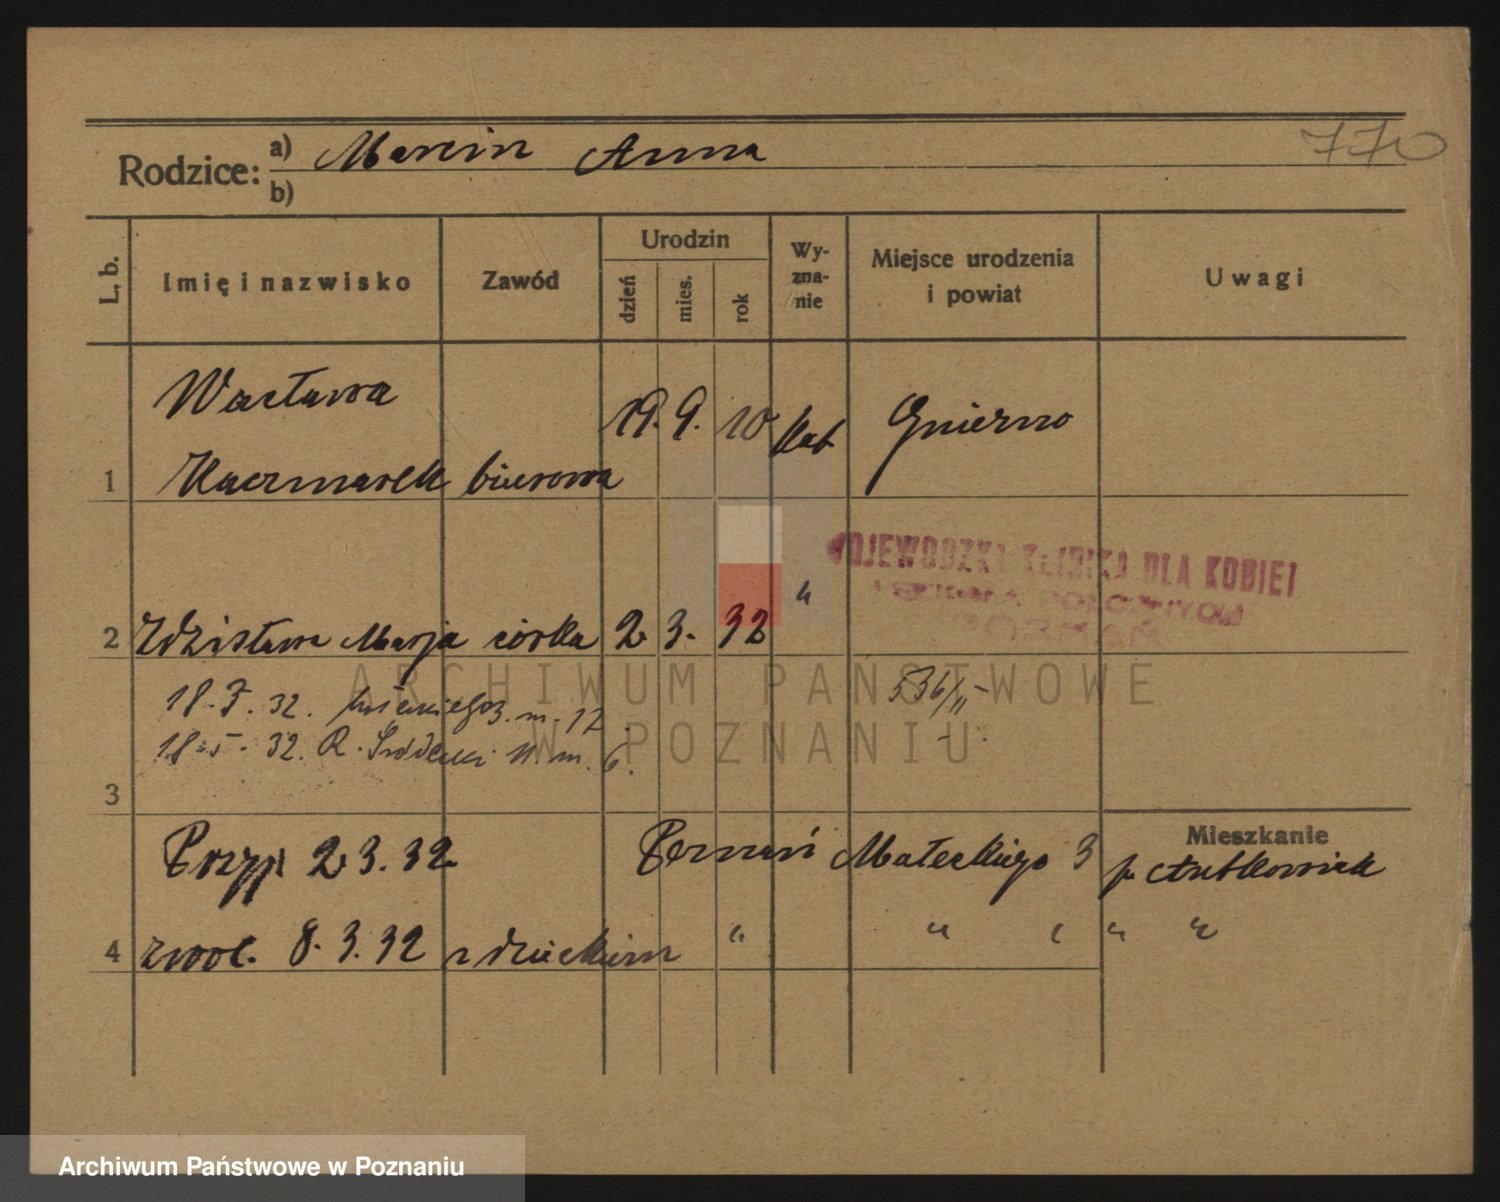 770
Rodzice: a) Marcin Anna
b)
L. b. Imię i nazwisko Zawód Urodzin dzień mies. rok Wyznanie Miejsce urodzenia i powiat Uwagi
Wacława
1 Kaczmarek biurowa 19. 9. 10 kat Gniezno
WOJEWÓDZKA KLINIKA DLA KOBIET
POZNAŃ
2 Zdzisława Marja córka 2 3. 32 "
18. 7. 32. m. 12
536/11-
18. 5. 32. R. m. 6.
3
Mieszkanie
Przyp 2 3. 32 Poznań Małeckiego 3 p Antkowiak
4 zwol. 8. 3. 32 z dzieckiem " " " " "
ARCHIWUM PAŃSTWOWE
W POZNANIU
Archiwum Państwowe w Poznaniu